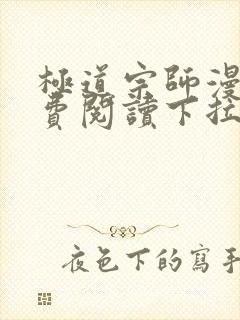 極道宗師漫
費閱讀下拉
夜色下的寫手